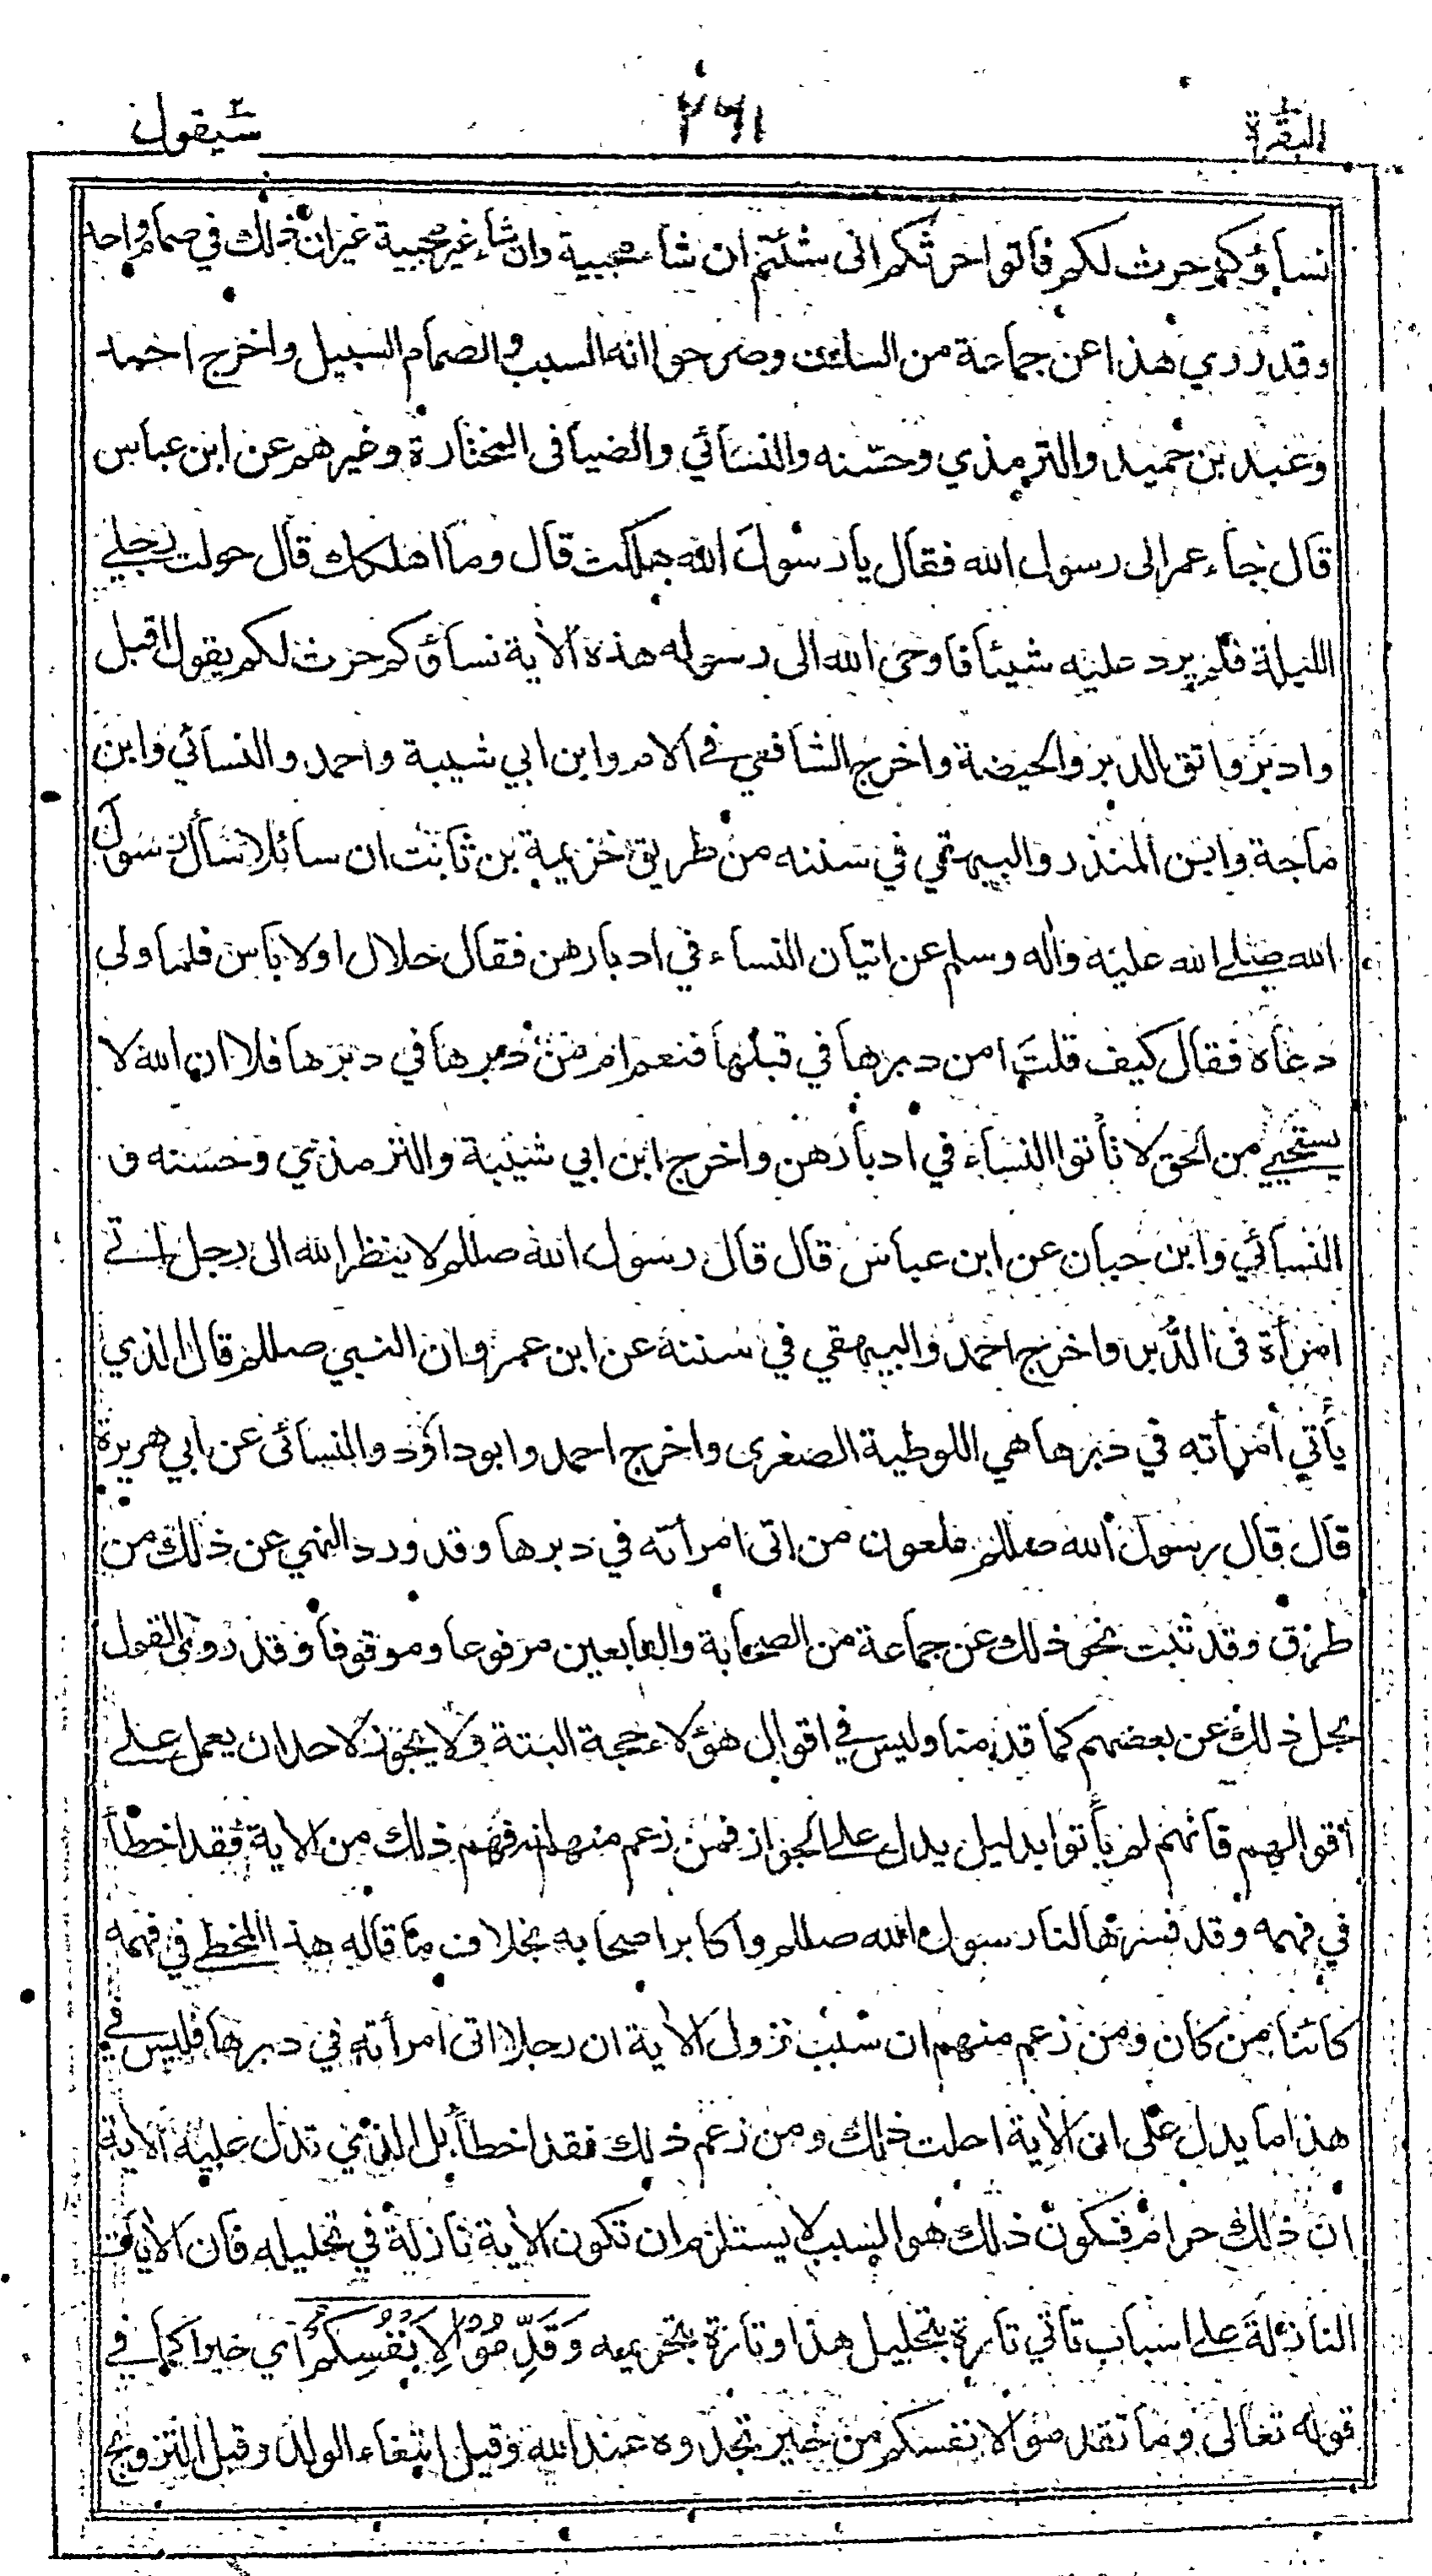 البقرة ٢٦١ سيقول
نساؤكم حرث لكم فأتوا حرثكم انى شئتم ان شاء مجبية وان شاء غير مجبية غير ان ذلك في صمام واحد
وقد روي هذا عن جماعة من السلف وصرحوا انه السبب والصمام السبيل واخرج احمد
وعبد بن حميد والترمذي وحسنه والنسائي والضيا فى المختارة وغيرهم عن ابن عباس
قال جاء عمر الى رسول الله فقال يا رسول الله هلكت قال وما اهلكك قال حولت رحلي
الليلة فلم يرد عليه شيئا فاوحى الله الى رسوله هذه الاٰية نساؤكم حرث لكم يقول اقبل
وادبر واتق الدبر والحيضة واخرج الشافعي في الام وابن ابي شيبة واحمد والنسائي وابن
ماجة وابن المنذر والبيهقي في سننه من طريق خزيمة بن ثابت ان سائلا سأل رسول
الله صلى الله عليه واٰله وسلم عن اتيان النساء في ادبارهن فقال حلال او لا بأس فلما ولى
دعاه فقال كيف قلت امن دبرها في قبلها فنعم ام من دبرها في دبرها فلا ان الله لا
يستحيي من الحق لا تأتوا النساء في ادبارهن واخرج ابن ابي شيبة والترمذي وحسنه و
النسائي وابن حبان عن ابن عباس قال قال رسول الله صللم لا ينظر الله الى رجل اتى
امرأة فى الدبر واخرج احمد والبيهقي في سننه عن ابن عمرو ان النبي صللم قال الذي
يأتي امرأته في دبرها هي اللوطية الصغرى واخرج احمد وابو داؤد والنسائى عن ابي هريرة
قال قال رسول الله صللم ملعون من اتى امرأته في دبرها وقد ورد النهي عن ذلك من
طرق وقد ثبت نحو ذلك عن جماعة من الصحابة والتابعين مرفوعا وموقوفا وقد روي القول
بحل ذلك عن بعضهم كما قدمنا وليس في اقوال هؤلاء حجة البتة ولا يجوز لاحد ان يعمل على
أقوالهم فانهم لم يأتوا بدليل يدل على الجواز فمن زعم منهم انه فهم ذلك من الاٰية فقد اخطأ
في فهمه وقد فسرها لنا رسول الله صللم واكابر اصحابه بخلاف ما قاله هذا المخطي في فهمه
كائنا من كان ومن زعم منهم ان سبب نزول الاٰية ان رجلا اتى امرأته في دبرها فليس في
هذا ما يدل على ان الاٰية احلت ذلك ومن زعم ذلك فقد اخطأ بل الذي تدل عليه الاٰية
ان ذلك حرام فكون ذلك هو السبب لا يستلزم ان تكون الاٰية نازلة في تحليله فان الاٰيات
النازلة على اسباب تأتي تارة بتحليل هذا وتارة بتحريمه وَقَدِّمُوْا لِاَنْفُسِكُمْ اي خيرا كما في
قوله تعالى وما تقدموا لانفسكم من خير تجدوه عند الله وقيل ابتغاء الولد وقيل التزويج